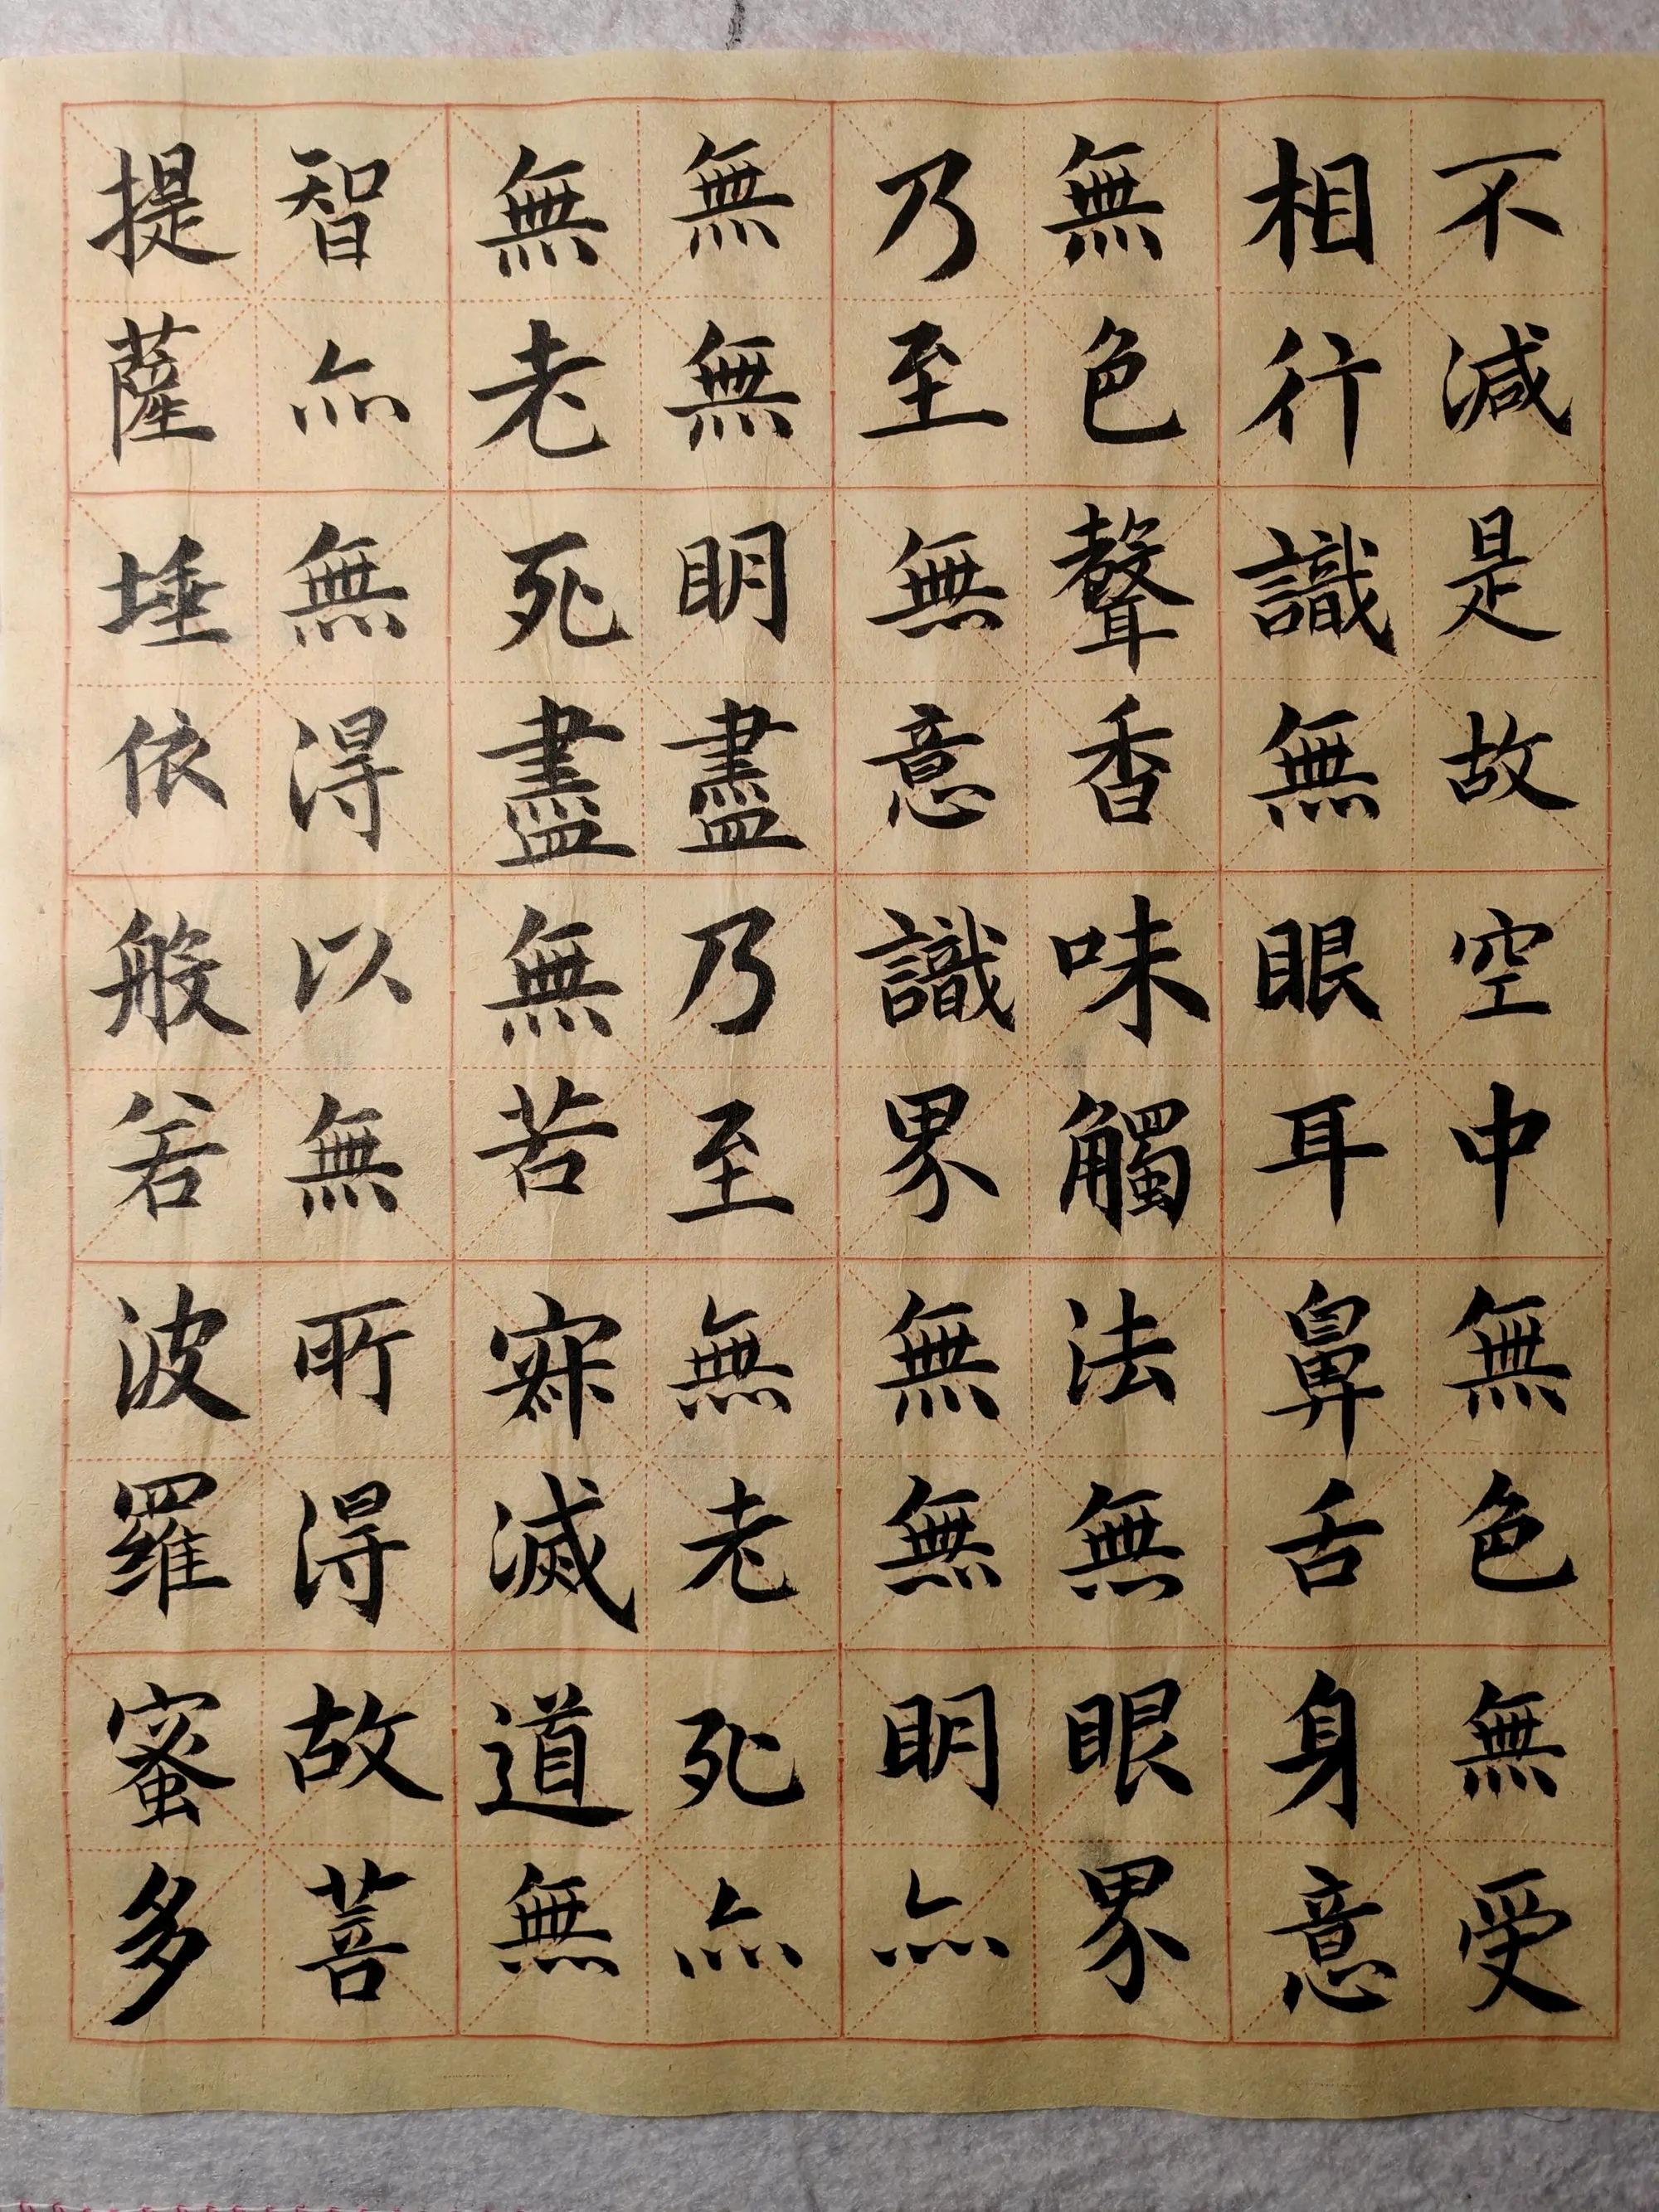 不減是故空中無色無受
相行識無眼耳鼻舌身意
無色聲香味觸法無眼界
乃至無意識界無無明亦
無無明盡乃至無老死亦
無老死盡無苦寂滅道無
智亦無得以無所得故菩
提薩埵依般若波羅蜜多